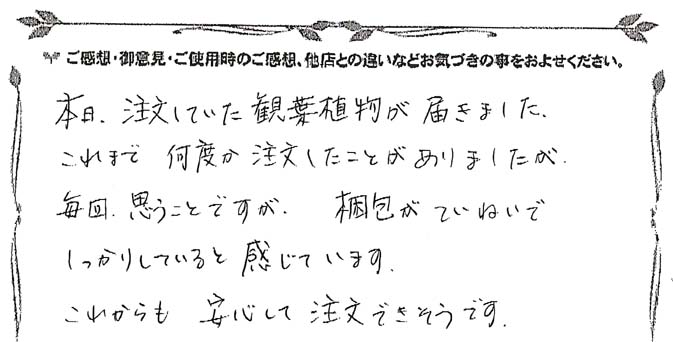 ご感想・御意見・ご使用時のご感想、他店との違いなどお気づきの事をおよせください。
本日、注文していた観葉植物が届きました、
これまで何度か注文したことがありましたが、
毎回、思うことですが、梱包がていねいで
しっかりしていると感じています、
これからも安心して注文できそうです、